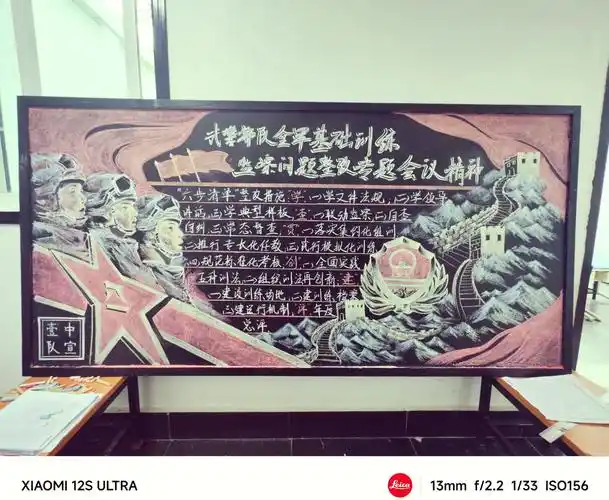 武警部队全军基础训练
监察问题整改专题会议精神
"六步清单"整改措施 学 一学文件法规, 二学领导
讲话, 三学典型样板 查 一联动监察, 二自查
自纠, 三常态督查 贯 一落实集约化组训
二推行专长化任教, 三践行模拟化训练
四规范标准化考核 创 一全面实践
五种训法, 二组织训法再创新, 建
一建设训练场地, 二建训练档案
三建运行机制, 评 年度
总评
中宣
壹队
XIAOMI 12S ULTRA
Leica
13mm f/2.2 1/33 ISO156